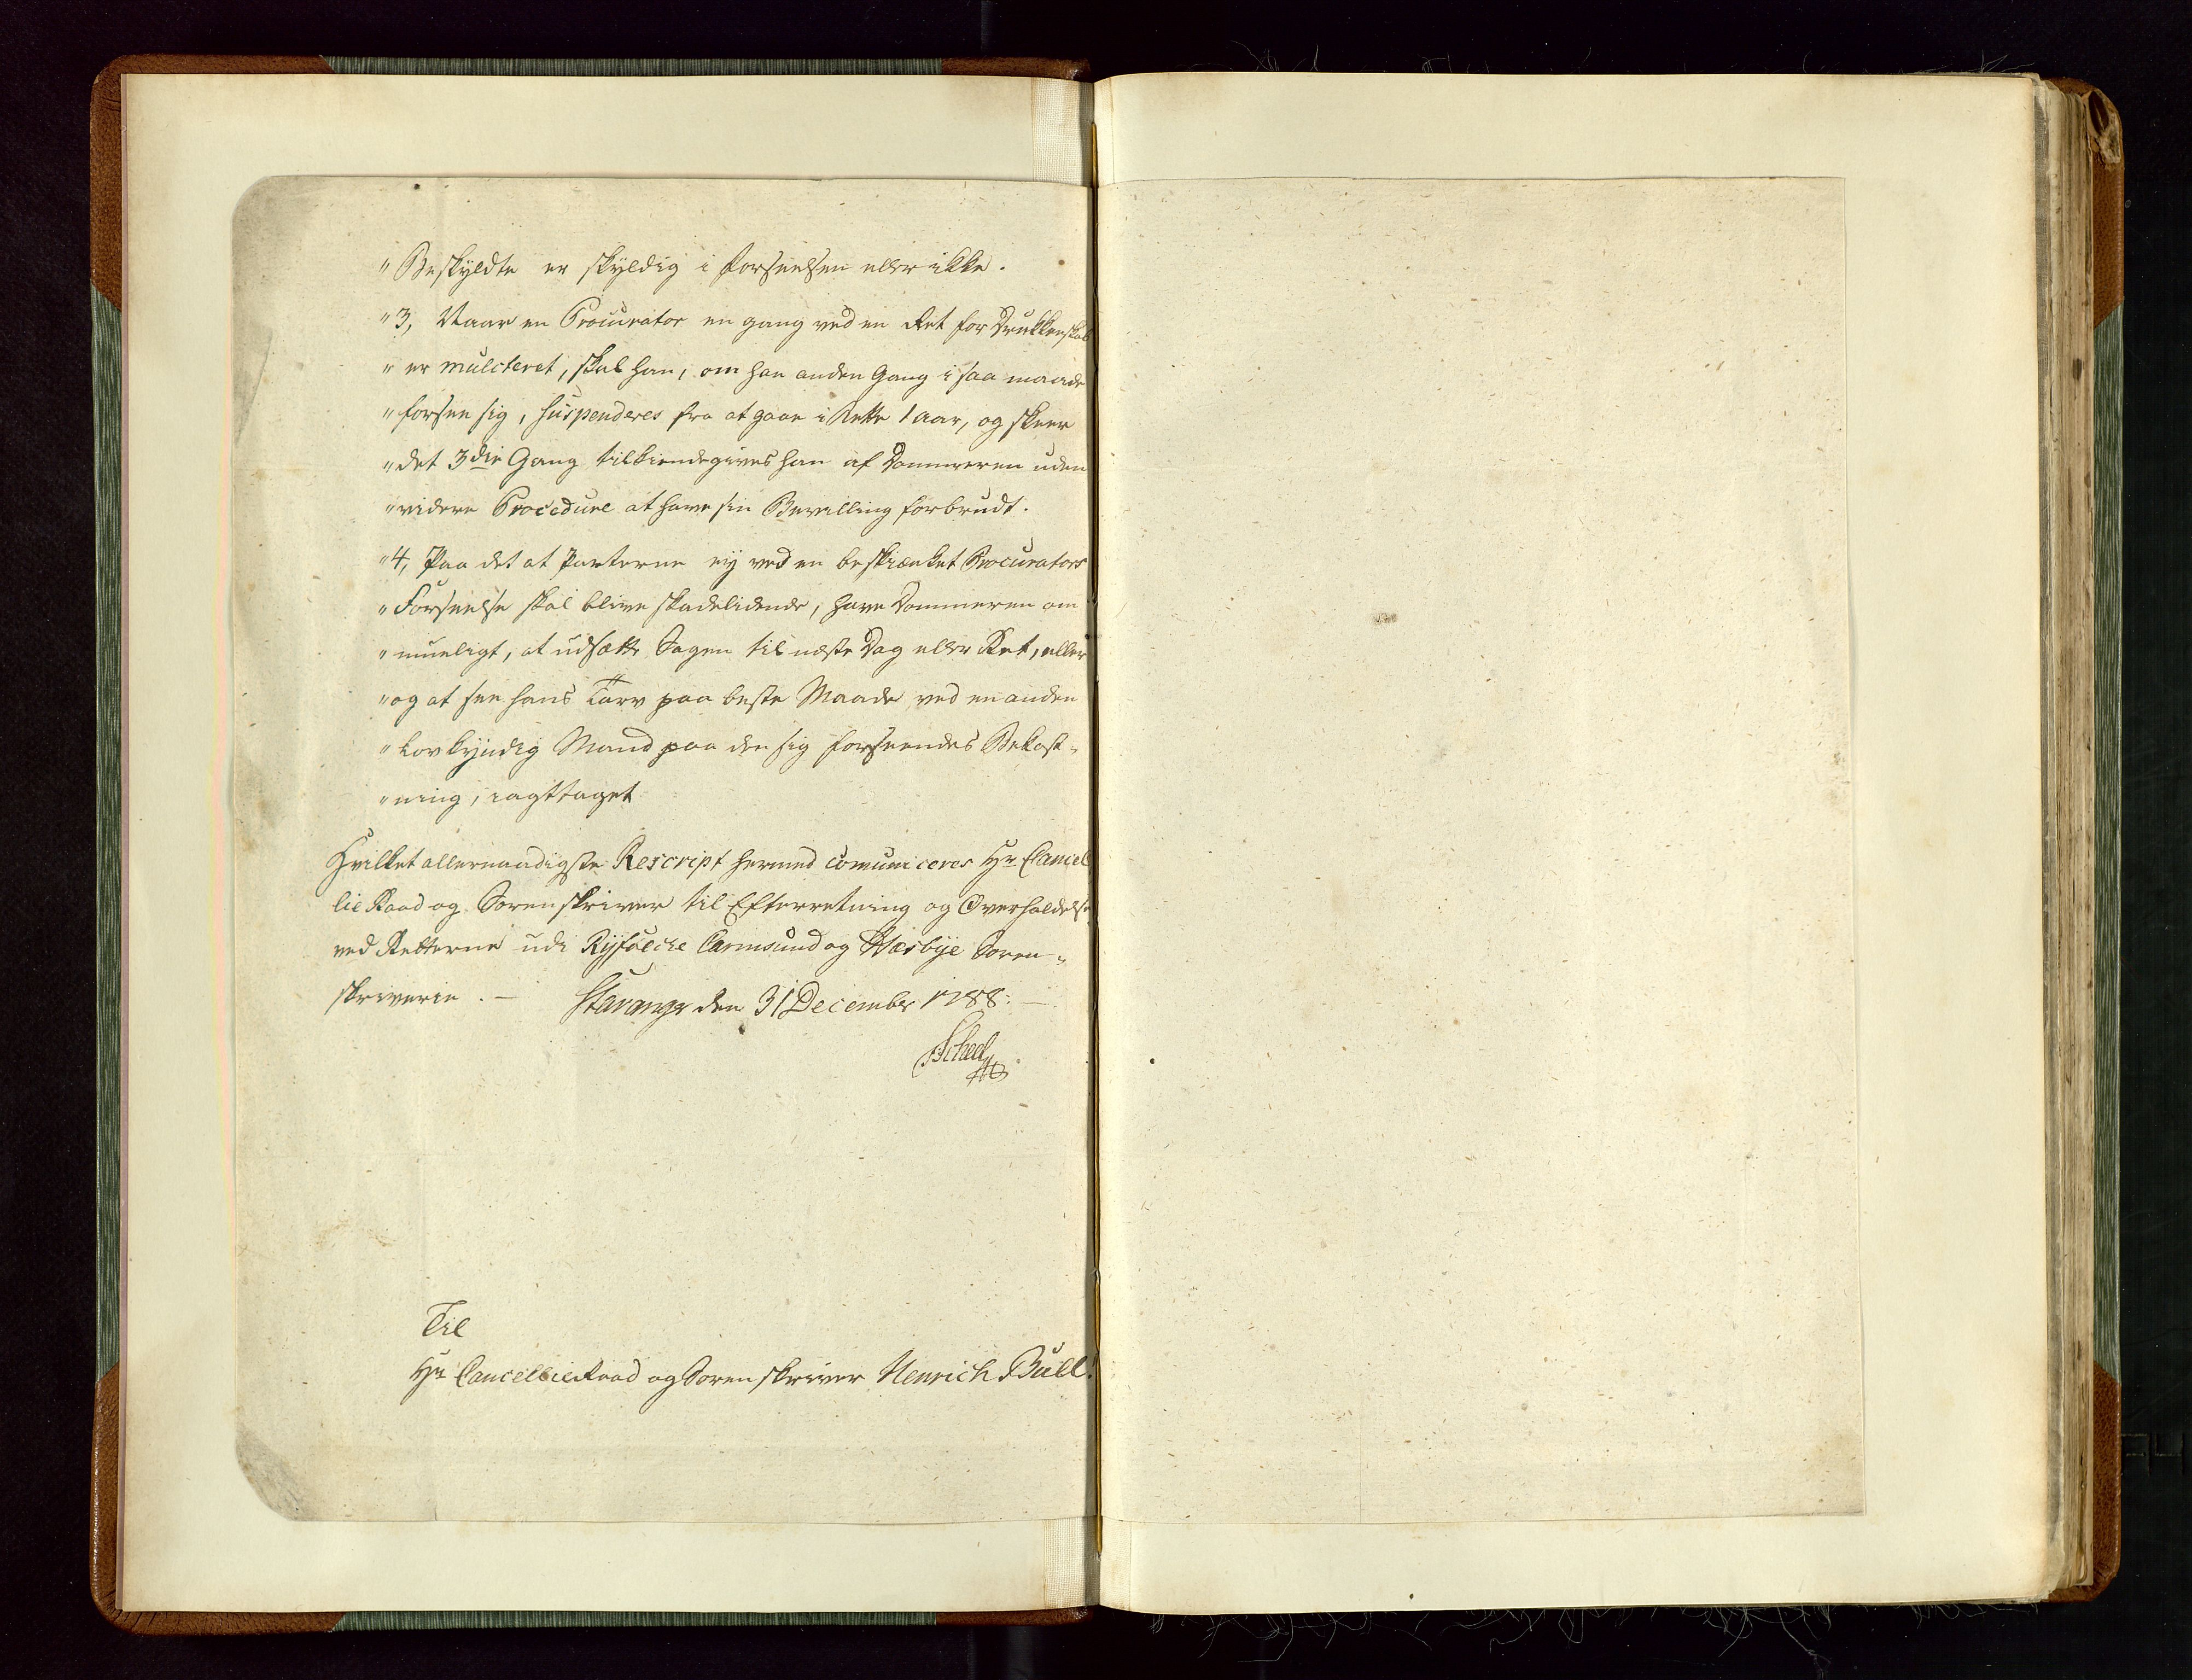 " Beskyldte er skyldig i Forseelsen eller ikke.
" 3, Naar en Procurator en gang ved en Ret for Drukkenskab
" er mulcteret, skal han, om han anden Gang i saa maade
" forseer sig, suspenderes fra at gaae i Rette 1 aar, og skeer
" det 3die Gang tilkiendegives han af Dommeren uden
" videre Procedure at have sin Bevilling forbrudt.
" 4, Paa det at Parterne ey ved en beskiænket Procurators
" Forseelse skal blive skadelidende, have Dommeren om
" mueligt, at udsætte Sagen til næste Dag eller Ret, eller
" og at see hans Tarv paa beste Maade ved en anden
" Lovkyndig Mand paa den sig forseendes Bekost-
" ning, iagttaget
Hvilket allernaadigste Rescript hermed comuniceres Hr Cancel
lie Raad og Sorenskriver til Efterretning og Overholdelse
ved Retterne udi Ryfylche Carmsund og Hæsbye Soren-
skriverie. — Stavanger den 31 December 1788. —
Scheel
Til
Hr Cancellie Raad og Sorenskriver Henrich Bull.